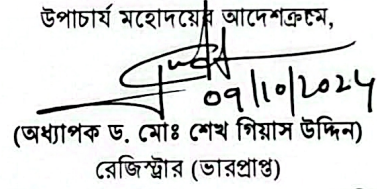 উপাচার্য মহোদয়ের আদেশক্রমে,
০৭/১০/২০২৪
(অধ্যাপক ড. মোঃ শেখ গিয়াস উদ্দিন)
রেজিস্ট্রার (ভারপ্রাপ্ত)